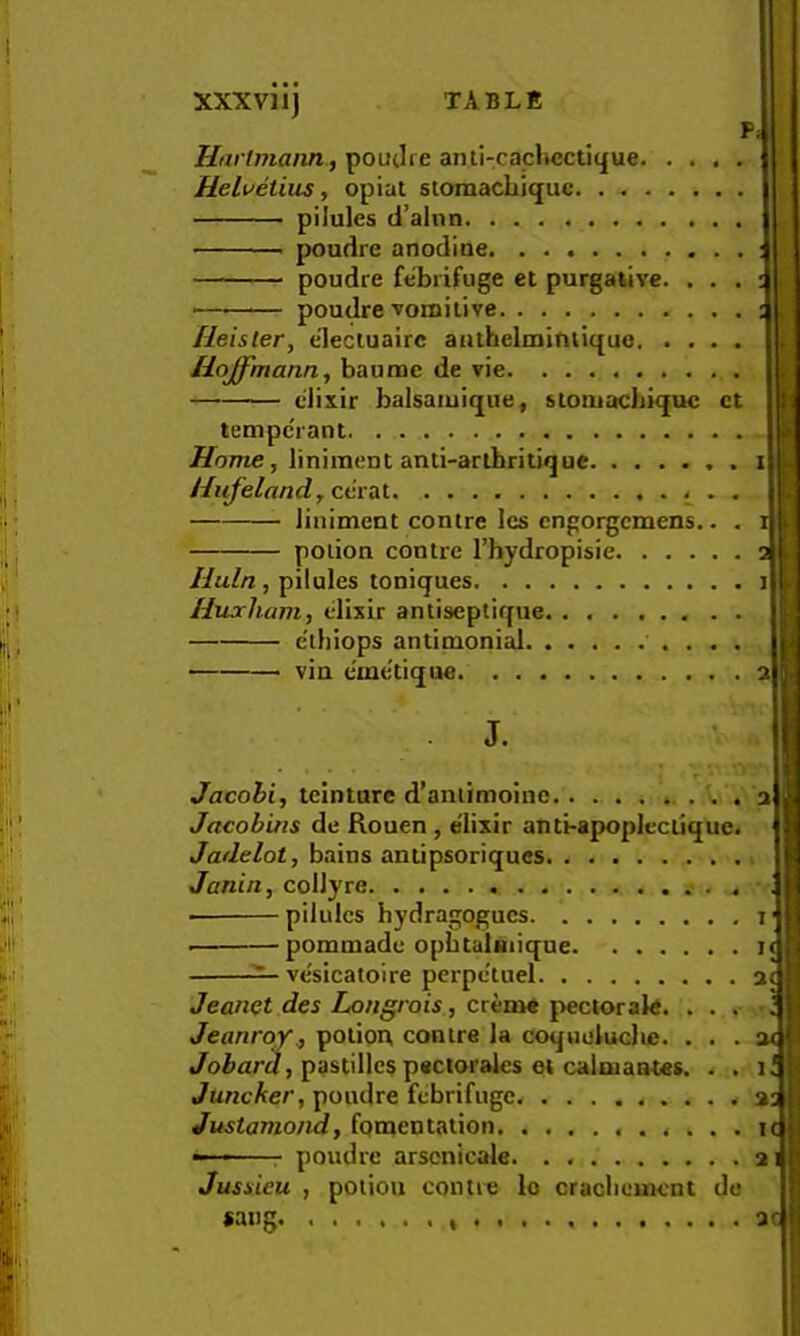 xxxviij TABLE
Hartmann, poudre anti-cachectique. . . . .
Helvétius, opiat stomachique. . . . . . . .
——— pilules d'alun. . . . . . . . . . . .
——— poudre anodine. . . . . . . . . . .
——— poudre fébrifuge et purgative. . . .
——— poudre vomitive. . . . . . . . . . .
Heister, électuaire anthelmintique. . . . .
Hoffmann, baume de vie. . . . . . . . . .
——— élixir balsamique, stomachique et
tempérant. . . . . . . . . . . . . . . . . .
Home, liniment anti-arthritique. . . . . . .
Hufeland, cérat. . . . . . . . . . . . . . .
——— liniment contre les engorgemens.. .
——— potion contre l'hydropisie. . . . . .
Huln, pilules toniques. . . . . . . . . . . .
Huxham, élixir antiseptique. . . . . . . . .
——— éthiops antimonial. . . . . . . . . .
——— vin émétique. . . . . . . . . . . . .
J.
Jacobi, teinture d'antimoine. . . . . . . . .
Jacobins de Rouen, élixir anti-apoplectique.
Jadelot, bains antipsoriques. . . . . . . . .
Janin, collyre. . . . . . . . . . . . . . . .
——— pilules hydragogues. . . . . . . . .
——— pommade ophtalmique. . . . . . .
——— vésicatoire perpétuel. . . . . . . . .
Jeanet des Longrois, crème pectorale. . . .
Jeanroy, potion contre la coqueluche. . . .
Jobard, pastilles pectorales et calmantes. . .
Juncker, poudre fébrifuge. . . . . . . . . .
Justamond, fomentation. . . . . . . . . . .
——— poudre arsenicale. . . . . . . . . .
Jussieu , potion contre le crachement de
sang. . . . . . . . . . . . . . . . . . . . .